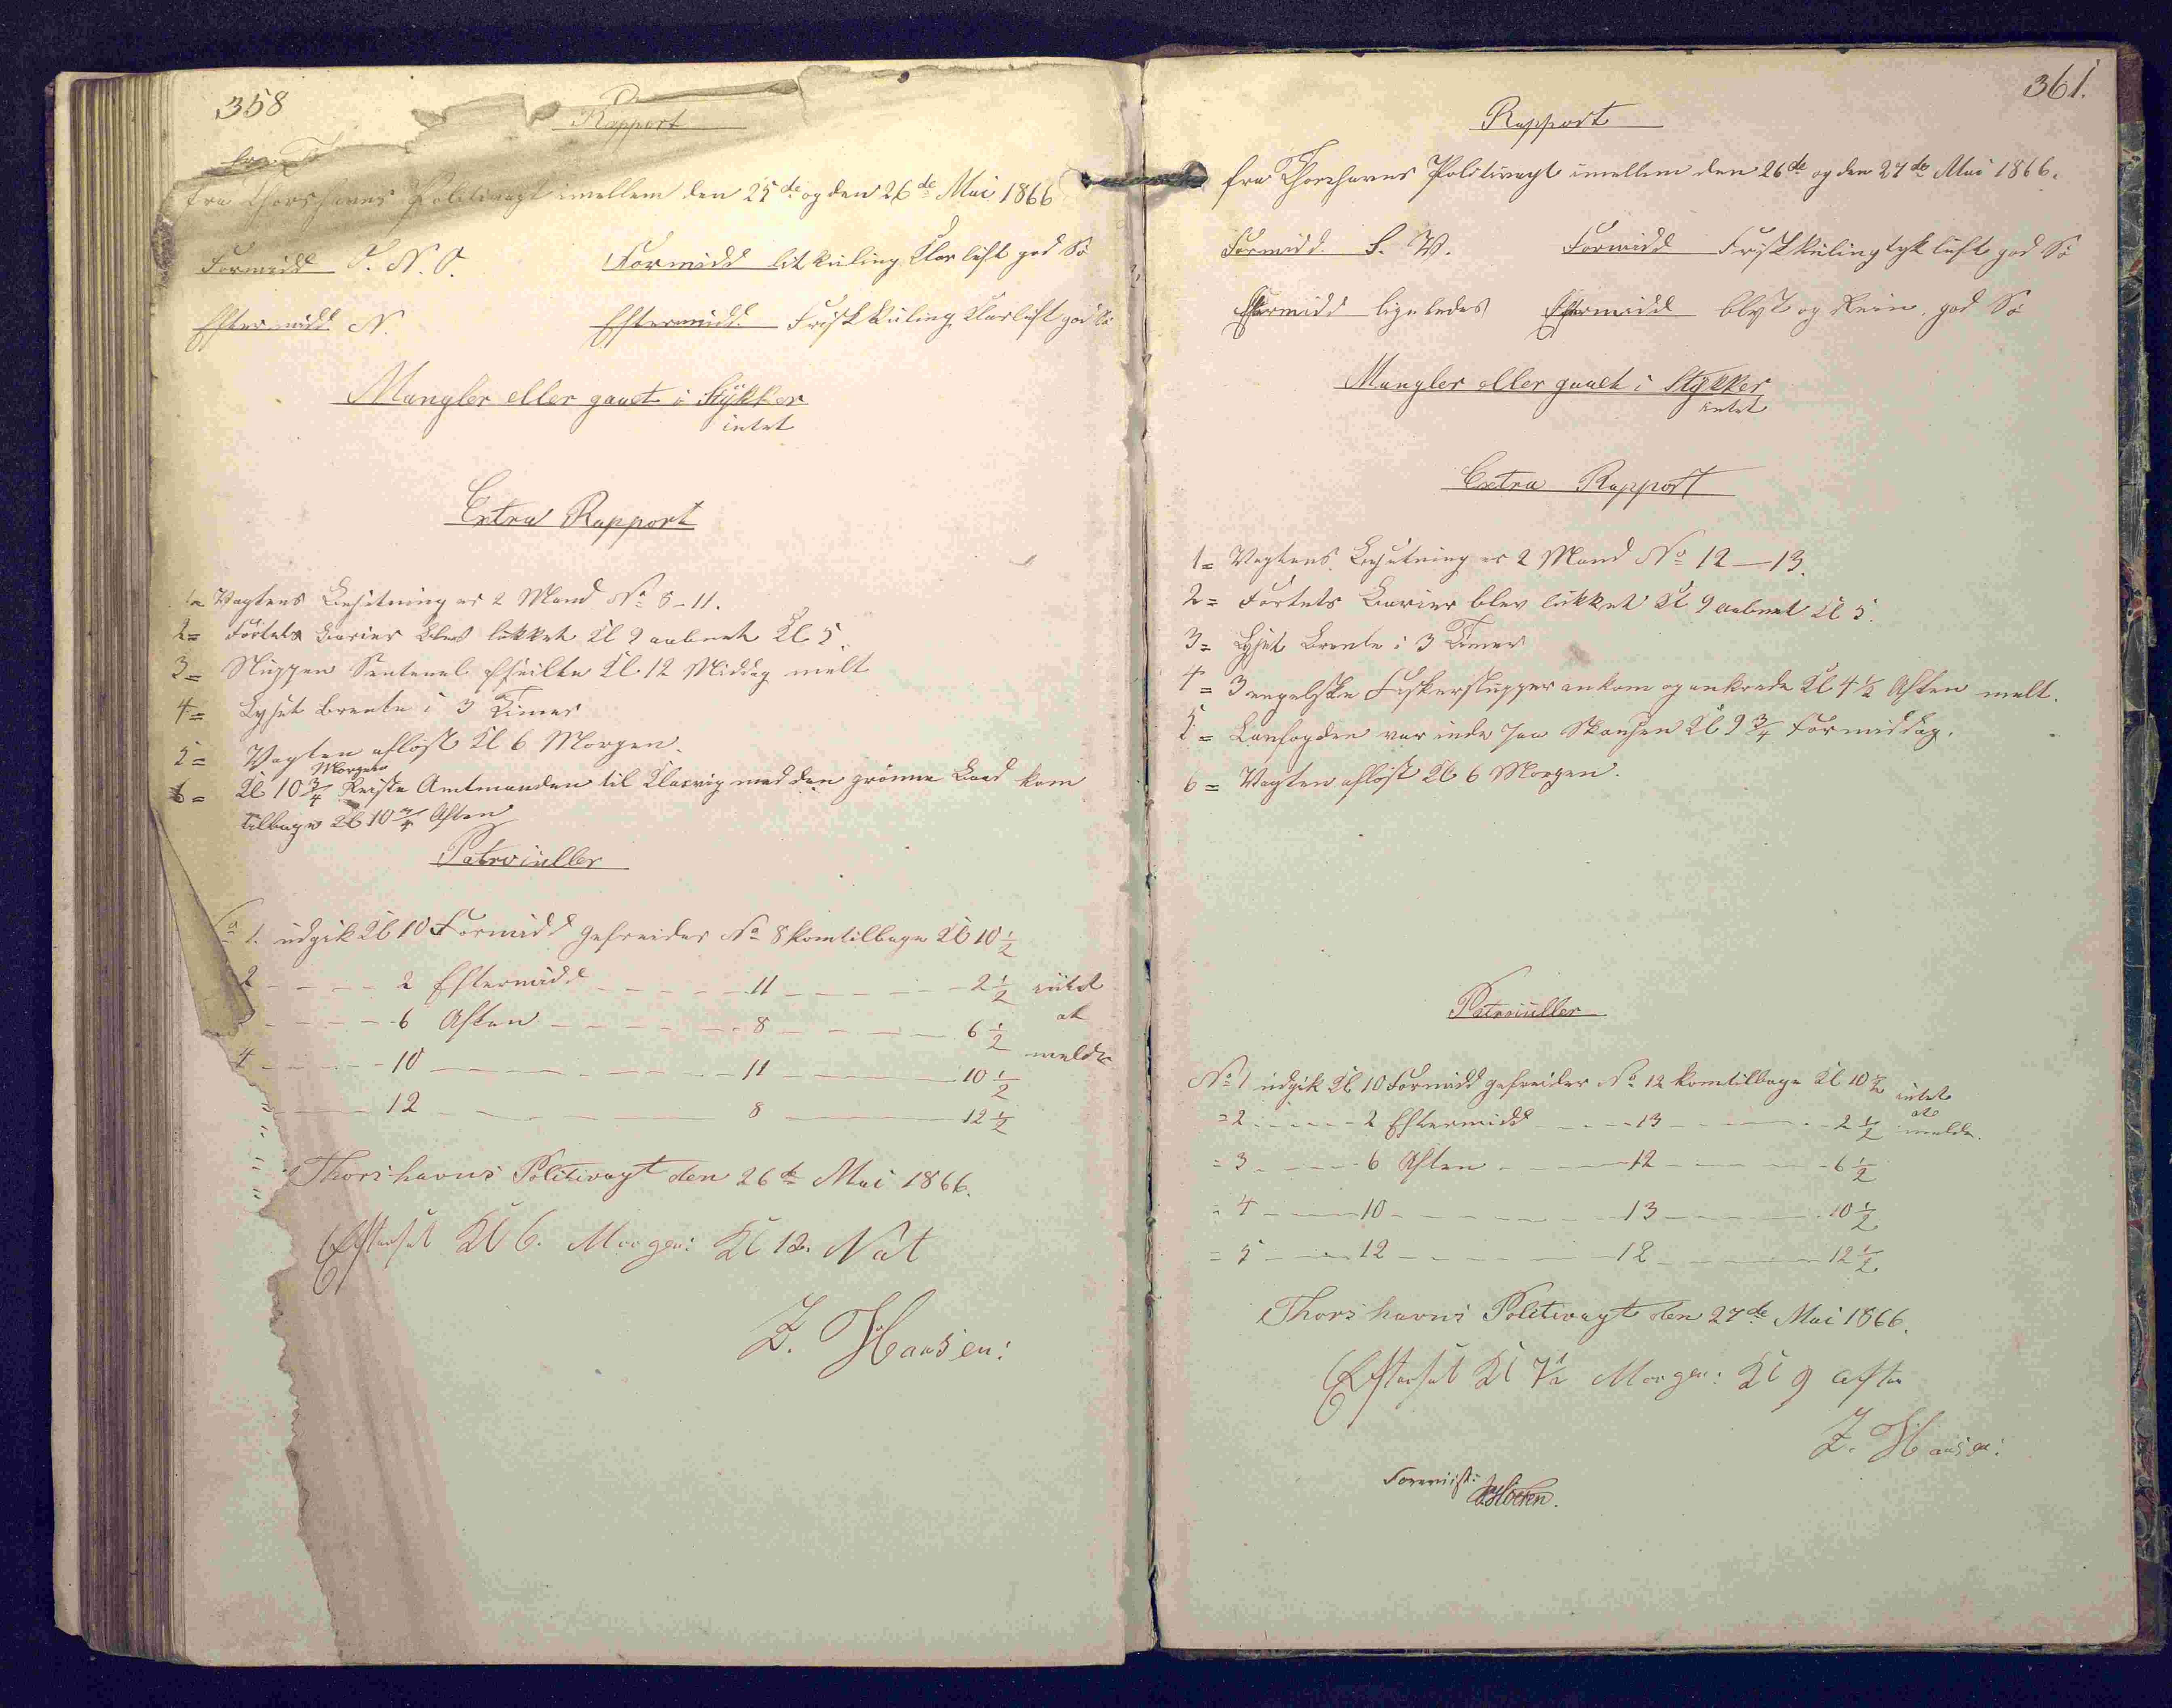 358
Rapport
fra Thorshavns Politivagt imellem den 25de og den 26de Mai 1866
Formidd O. N. O. Formidd lit Kuling Klar luft god Sö
Eftermidd N. Eftermidd. Frisk Kuling Klarluft god Sö
Mangler eller gaaet i Stÿkker
intet
Extra Rapport
1= Vagtens Besætning er 2 Mand No 8-11.
2= Fortets Barier blev lükket Kl 9 aabnet Kl 5.
3= Sluppen Sentenel seilte Kl. 12 Middag melt
4= Lyset brente i 3 Timer
5= Vagten aflöst Kl 6 Morgen.
Morgen
6= Kl 10 3/4 Reiste Amtmanden til Klaxvig med den grönne Baad kom
tilbage Kl 10 3/4 Aften
Patroüller
No 1. üdgik Kl 10 Formidd Gefreider No 8 kom tilbage Kl 10 1/2
2 - - - - 2 Eftermidd - - - - 11 - - - - 2 1/2 intet
- - - - 6 Aften - - - - 8 - - - - 6 1/2 at
4 - - - - 10 - - - - 11 - - - - 10 1/2 melde
- - - - 12 - - - - 8 - - - - 12 1/2
Thorshavns Politivagt den 26de Mai 1866.
Efterset Kl 6. Morgen: Kl 12. Nat
Z. Hansen:
361.
Rapport
fra Thorshavns Politivagt imellem den 26de og den 27de Mai 1866.
Formidd. S. W. Formidd Frisk Kuling tyk luft god Sö
Eftermidd ligeledes Eftermidd blÿst og Rein, god Sö
Mangler eller gaaet i Stÿkker
intet
Extra Rapport
1= Vagtens Besætning er 2 Mand No 12-13.
2= Fortets Barier blev lükket Kl 9 aabnet Kl 5.
3= Lyset Brente i 3 Timer
4= 3 engelske Fiskerslupper ankom og ankrede Kl 4 1/2 Aften melt.
5= Lanfogden var inde paa Skansen Kl 9 3/4 Formiddag.
6= Vagten aflöst Kl 6 Morgen.
Patroüller
No 1 üdgik Kl 10 Formidd gefreider No 12 kom tilbage Kl 10 1/2 intet
=2 - - - - 2 Eftermidd - - - - 13 - - - - 2 1/2 at melde.
=3 - - - - 6 Aften - - - - 12 - - - - 6 1/2
=4 - - - - 10 - - - - 13 - - - - 10 1/2
=5 - - - - 12 - - - - 12 - - - - 12 1/2
Thorshavns Politivagt den 27de Mai 1866.
Efterset Kl 7 1/2 Morgen: Kl 9 aften
Z. Hansen:
Foreviist: